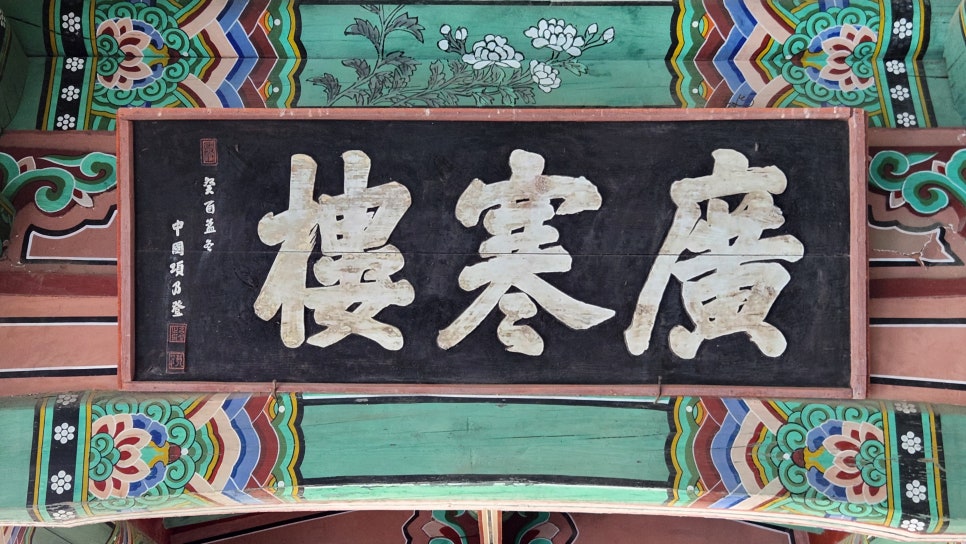 廣寒樓
癸酉孟冬
中國項乃登